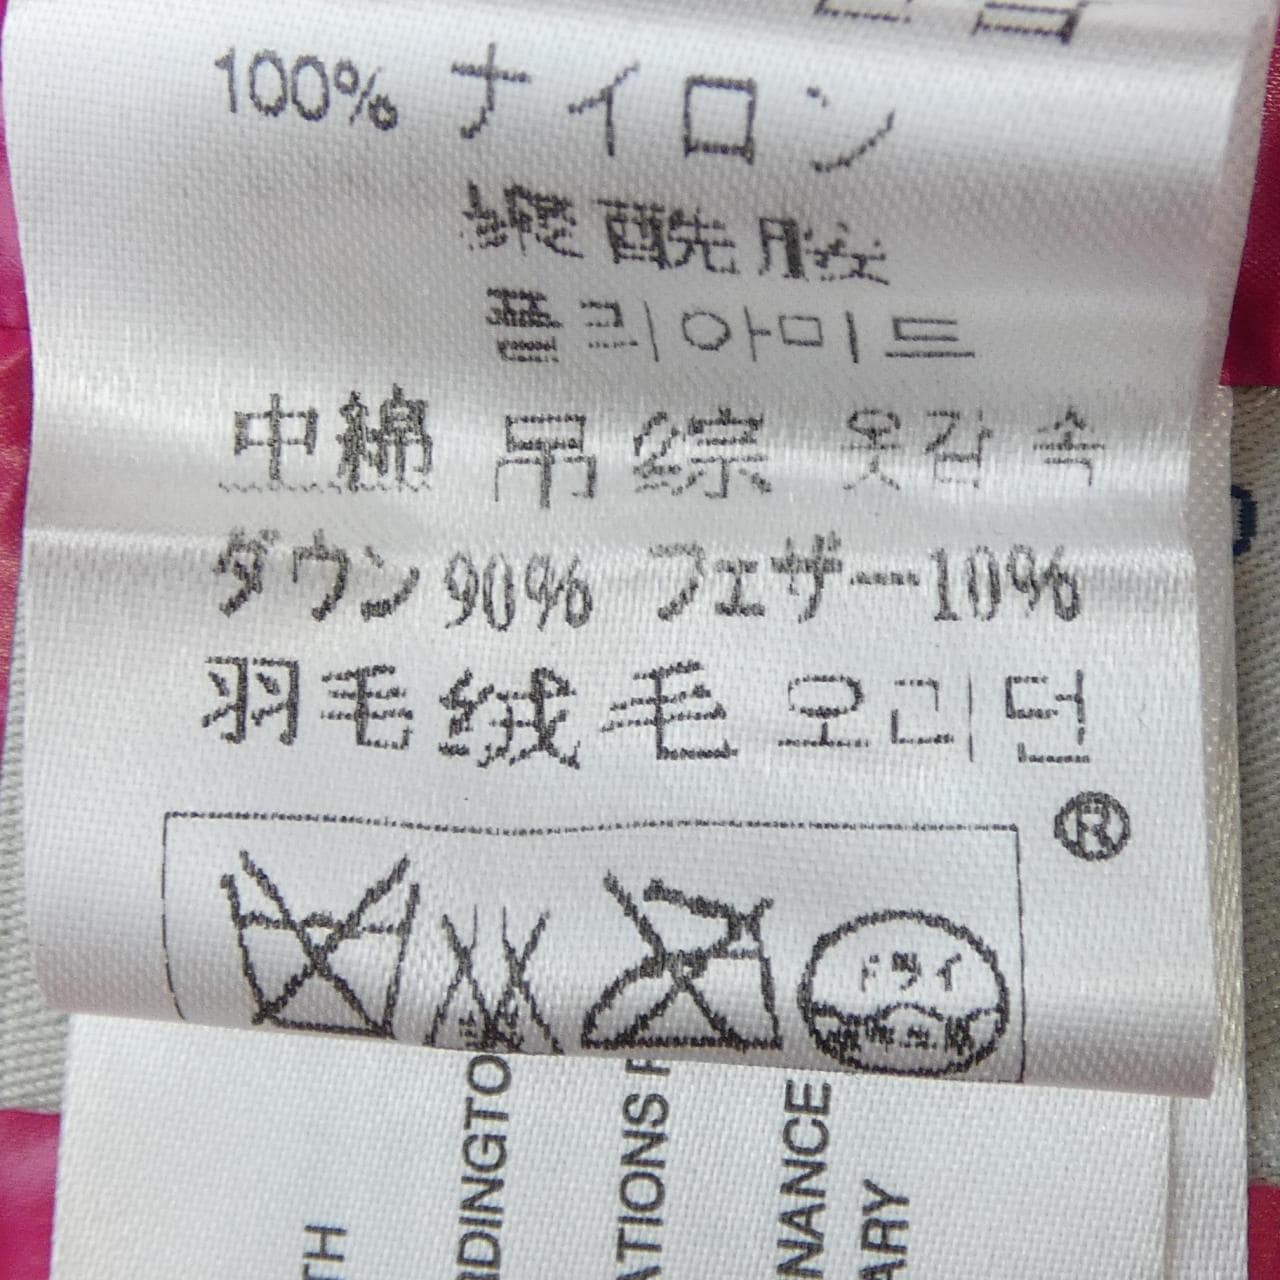 100% ナイロン
폴리아미드
中綿 吊 综 옷감 속
ダウン 90% フェザー 10%
羽毛绒毛 오리털
®
ドライ
石油系
TH
RDINGTO
ATIONS F
NANCE
ARY